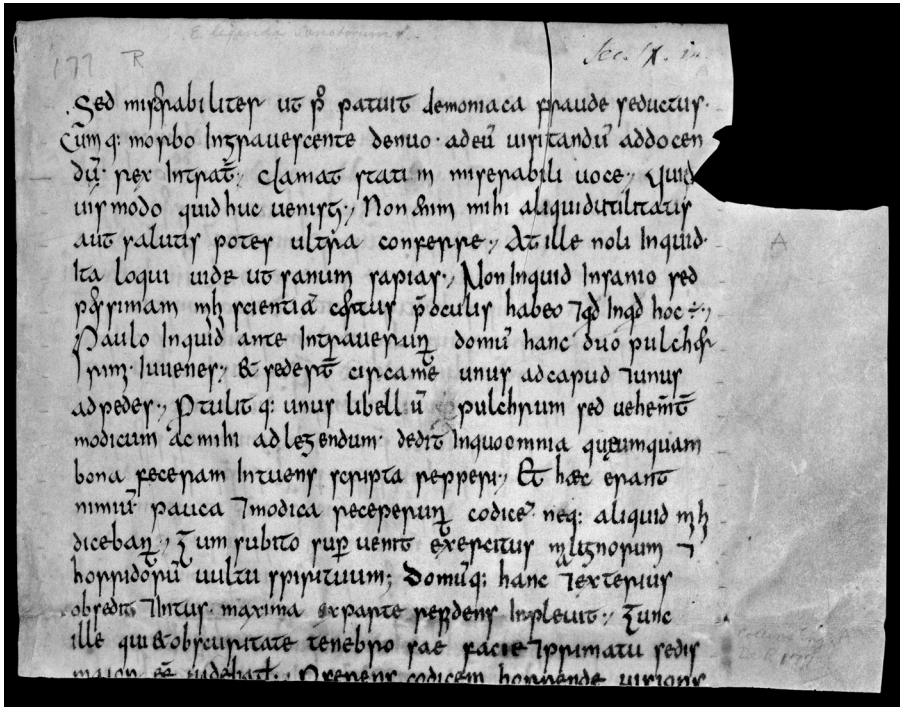 E legenda Sanctorum
177 R
Sec. IX. in.
Sed miserabiliter ut post patuit demoniaca fraude seductus·
Cūmq: morbo Ingravescente denuo· adeū visitandū addocen
dū· rex Intrat̄; clamat statim miserabili voce; Quid
vis modo quid huc venisti; Non enim mihi aliquid utilitatis
aut salutis potes ultra conferre; At ille noli Inquid·
Ita loqui vide ut sanum sapias; Non Inquid Insanio sed
pessimam mħ scientiā certus p̄ oculis habeo ⁊qd Inqd hoc ÷;
Paulo Inquid ante Intraverunt domū hanc duo pulcher
rimi· Iuvenes; & sedert̄ circa me unus ad capud ⁊unus
ad pedes; Ptulit q: unus libellū pulchrum sed vehem̄t̄
modicum ac mihi ad legendum· dedit In quo omnia quæ umquam
bona feceram Intuens scripta repperi; Et hæc erant
nimiū· pauca ⁊modica receperunt codicē· neq: aliquid mħ
dicebant; Tum subito sup venit exercitus malignorum ⁊
horridorū vultu spirituum; Domūq: hanc ⁊exterius
obsedit ⁊Intus· maxima ex parte sedens Inplevit; Tunc
ille qui & obscuritate tenebro sae faciei ⁊primatu sedis
maior eē videbat; Proferens codicem horrende visionis
A
177